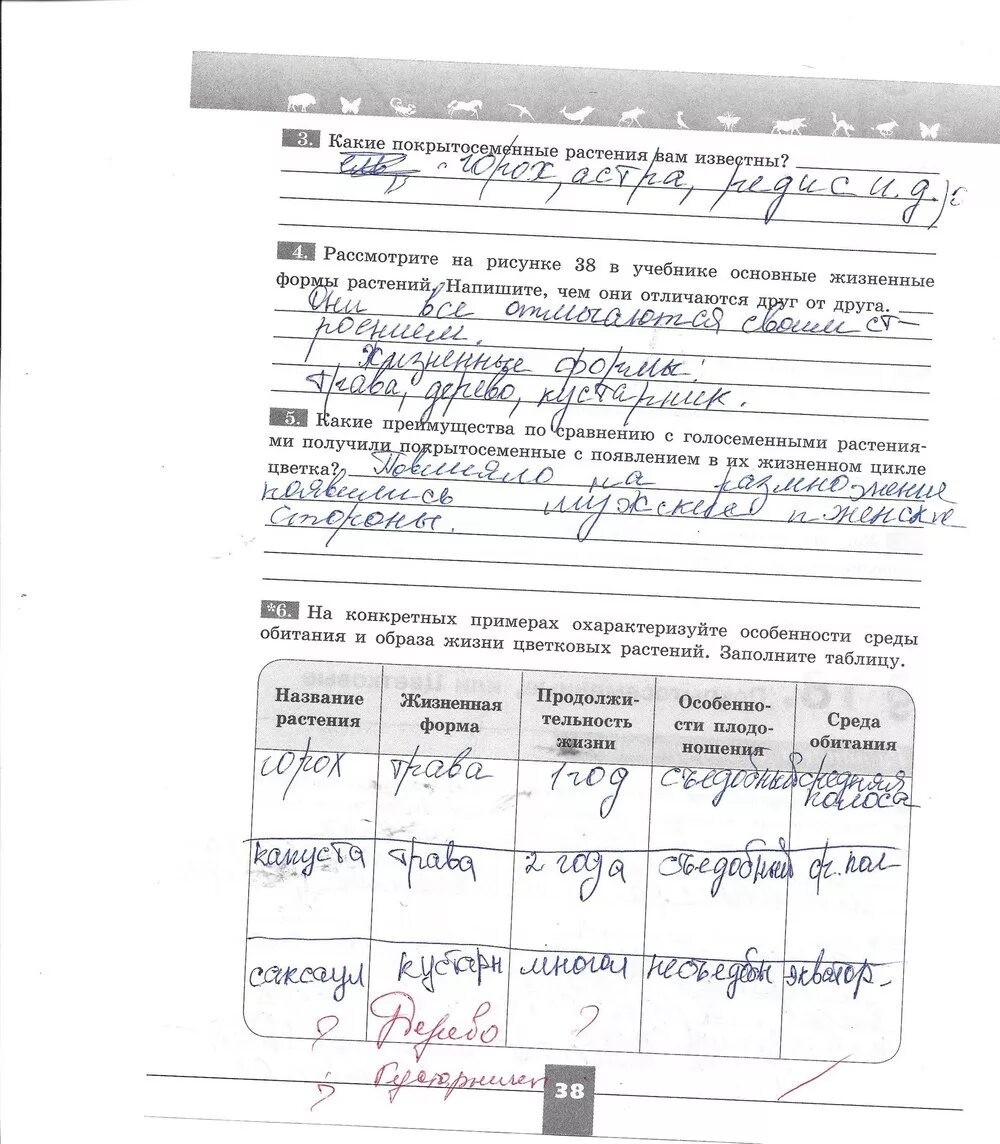 3. Какие покрытосеменные растения вам известны?
горох, астра, редис и.д)
4. Рассмотрите на рисунке 38 в учебнике основные жизненные
формы растений. Напишите, чем они отличаются друг от друга.
Они все отличаются своим ст-
роением.
Жизненные формы:
трава, дерево, кустарник.
5. Какие преимущества по сравнению с голосеменными растения-
ми получили покрытосеменные с появлением в их жизненном цикле
цветка? Повлияло на размножение
появились мужские и женские
стороны.
*6. На конкретных примерах охарактеризуйте особенности среды
обитания и образа жизни цветковых растений. Заполните таблицу.
Название растения | Жизненная форма | Продолжи-тельность жизни | Особенно-сти плодо-ношения | Среда обитания
горох | трава | 1 год | съедобный | средняя полоса
капуста | трава | 2 года | съедобный | ср. пол-
саксаул | кустарн | многол | несъедобн | экватор-
? Дерево ?
?
38